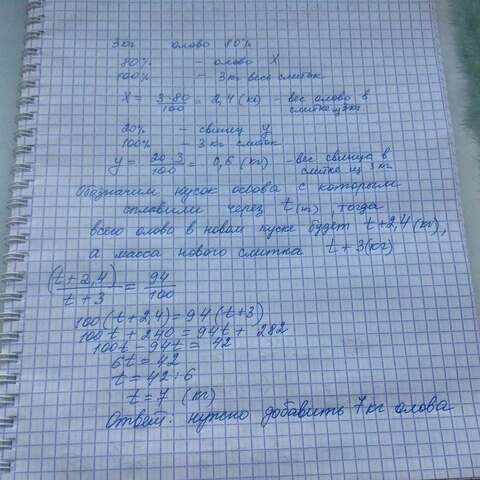 3 кг олово 80%
80% - олово X
100% - 3 кг весь слиток
X = 3·80/100 = 2,4 (кг) - вес олово в слитке из 3 кг
20% - свинец y
100% - 3 кг слиток
y = 20·3/100 = 0,6 (кг) - вес свинца в слитке из 3 кг
Обозначим кусок олова с которым
сплавили через t (т), тогда
всего олово в новом куске будет t+2,4 (кг),
а масса нового слитка t+3 (кг)
(t+2,4)/t+3 = 94/100
100(t+2,4)=94(t+3)
100t+240=94t+282
100t-94t=42
6t=42
t=42:6
t=7 (кг)
Ответ: нужно добавить 7 кг олова